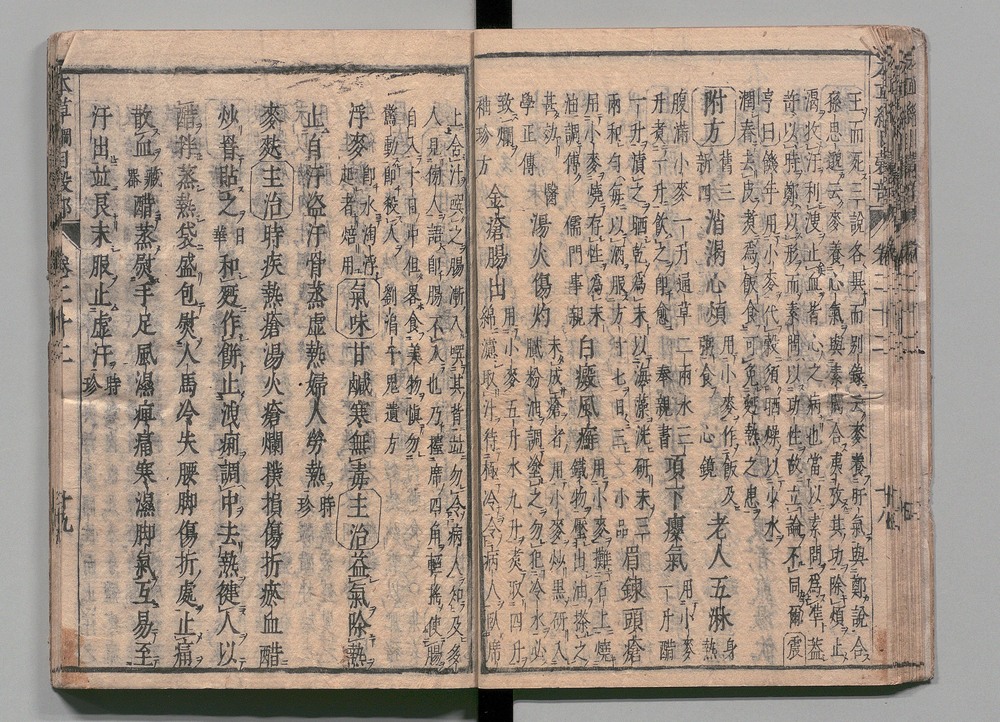 王而死三說各異而別錄云麥養肝氣與鄭說合
孫思邈云麥養心氣與素問合夷攷其功除煩止
渴收汗利溲止血皆心之病也當以素問爲準蓋
許以時鄭以形而素問以功性故立論不同爾震
亨曰饑年用小麥代穀須晒燥以少水
潤舂去皮煮爲飯食可免麪熱之患
附方 舊三新四 消渴心煩 用小麥作飯及粥食 心鏡 老人五淋 身熱
腹滿小麥一升通草二兩水三
升煮一升飲之卽愈 奉親書 項下癭氣 用小麥一升醋
一升漬之晒乾爲末以海藻洗研末三
兩和勻每以酒服方寸七日三 小品 眉鍊頭瘡
用小麥燒存性爲末油調傅 儒門事親 白癜風癬 用小麥攤石上燒
鐵物壓出油搽之甚效 醫學正傳 湯火傷灼 未成瘡者用小麥炒黑研入
膩粉油調塗之勿犯冷水必致爛 袖珍方
金瘡腸出 用小麥五升水九升煮取四升
綿濾取汁待極冷令病人臥席
上含汁噀之腸漸入噀其背並勿令病人知及多
人見傍人語卽腸不入也乃擡席四角輕搖使腸
自入十日中但畧食美物愼勿
驚動卽殺人 劉涓子鬼遺方
浮麥 卽水淘浮起者焙用 氣味 甘鹹寒無毒 主治 益氣除熱
止自汗盜汗骨蒸虛熱婦人勞熱 時珍
麥麩 主治 時疾熱瘡湯火瘡爛撲損傷折瘀血醋
炒罯貼之 日華 和麪作餅止洩痢調中去熱健人以
醋拌蒸熱袋盛包熨人馬冷失腰脚傷折處止痛
散血 藏器 醋蒸熨手足風濕痹痛寒濕脚氣互易至
汗出並良末服止虛汗 時珍
本草綱目穀部 卷二十二 十九